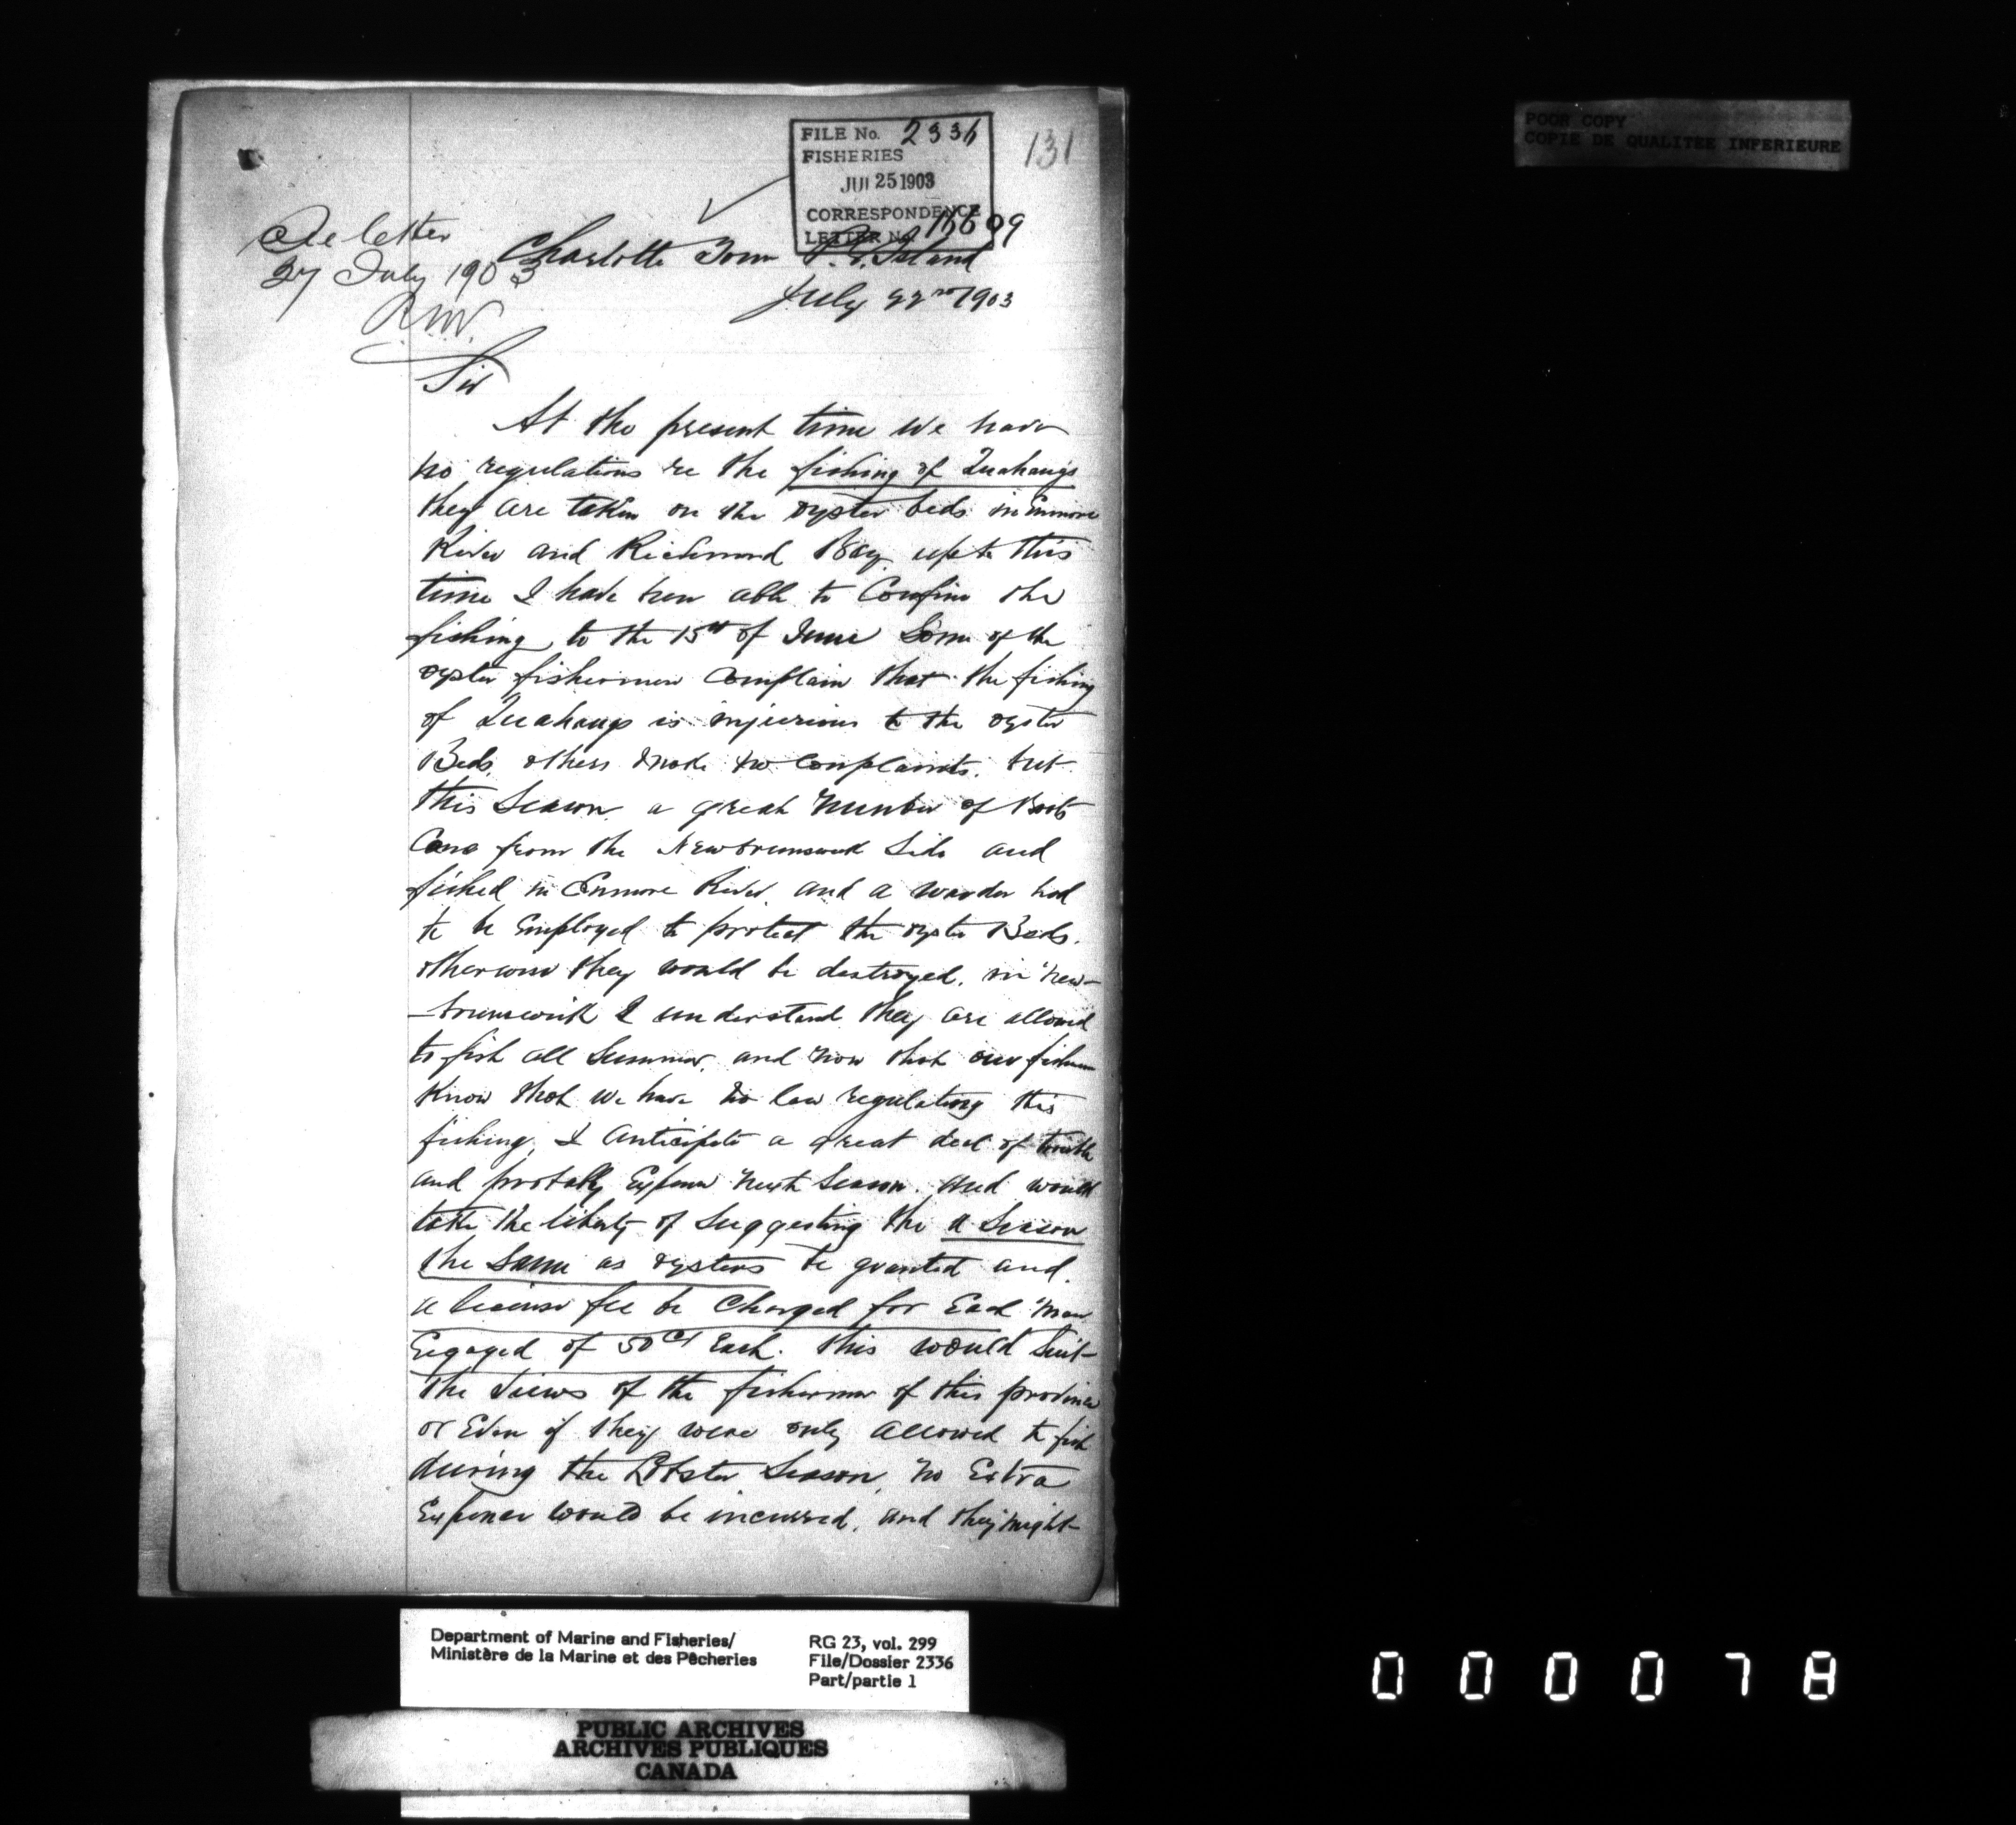 POOR COPY
COPIE DE QUALITEE INFERIEURE
FILE No. 2336
FISHERIES
JUL 25 1903
CORRESPONDENCE
LETTER No.
131
letter
27 July 1903
Charlotte Town P. E. Island
July 22nd 1903
Sir
At the present time we have
no regulations re the fishing of Quahaugs
they are taken on the oyster beds in Enmore
River and Richmond Bay, up to this
time I have been able to Confine the
fishing to the 15th of June Some of the
oyster fishermen Complain that the fishing
of Quahaugs is injurious to the oyster
Beds, others make no Complaints, but
this Season a great number of Boats
Came from the Newbrunswick Side and
fished in Enmore River, and a warden had
to be Employed to protect the oyster Beds.
otherwise they would be destroyed, in New-
-brunswick I understand they are allowed
to fish all Summer, and now that our fishermen
Know that we have no law regulating this
fishing, I anticipate a great deal of trouble
and probably Expense next Season. and would
take the liberty of Suggesting the a Season
the Same as oysters be granted and,
a license fee be Charged for Each man
Engaged of 50cts Each. this would Suit
the views of the fishermen of this province
or Even if they were only allowed to fish
during the Lobster Season, no Extra
Expense would be incurred, and they might
Department of Marine and Fisheries/
Ministère de la Marine et des Pêcheries
RG 23, vol. 299
File/Dossier 2336
Part/partie 1
PUBLIC ARCHIVES
ARCHIVES PUBLIQUES
CANADA
000078